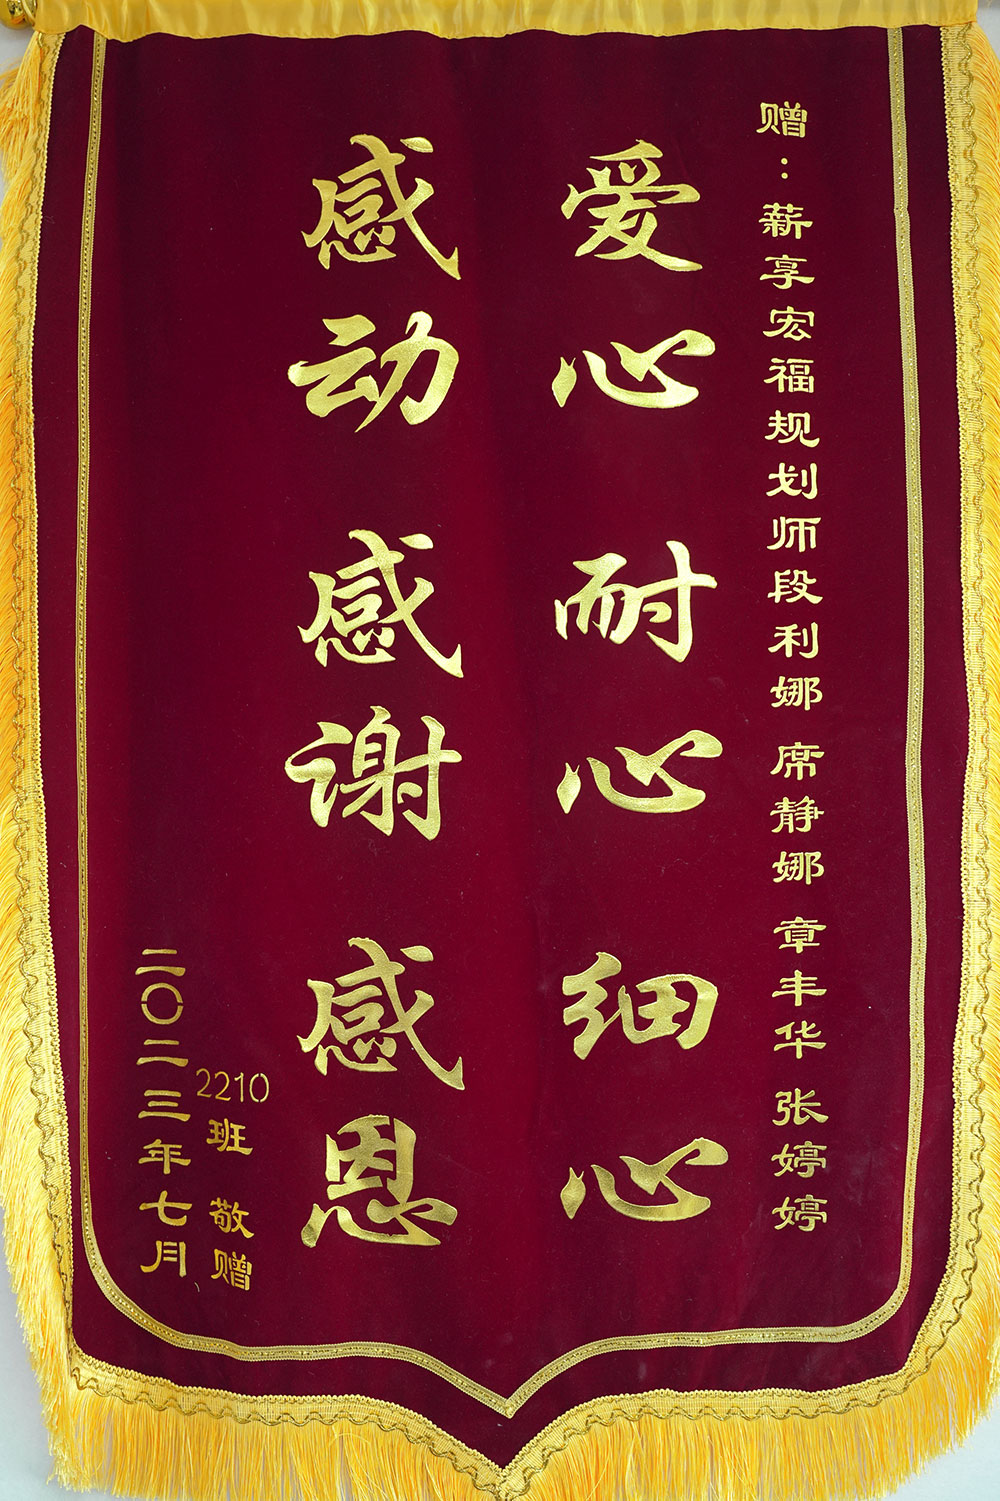 赠：薪享宏福规划师段利娜 席静娜 章丰华 张婷婷
爱心 耐心 细心
感动 感谢 感恩
2210班 敬赠
二〇二三年七月